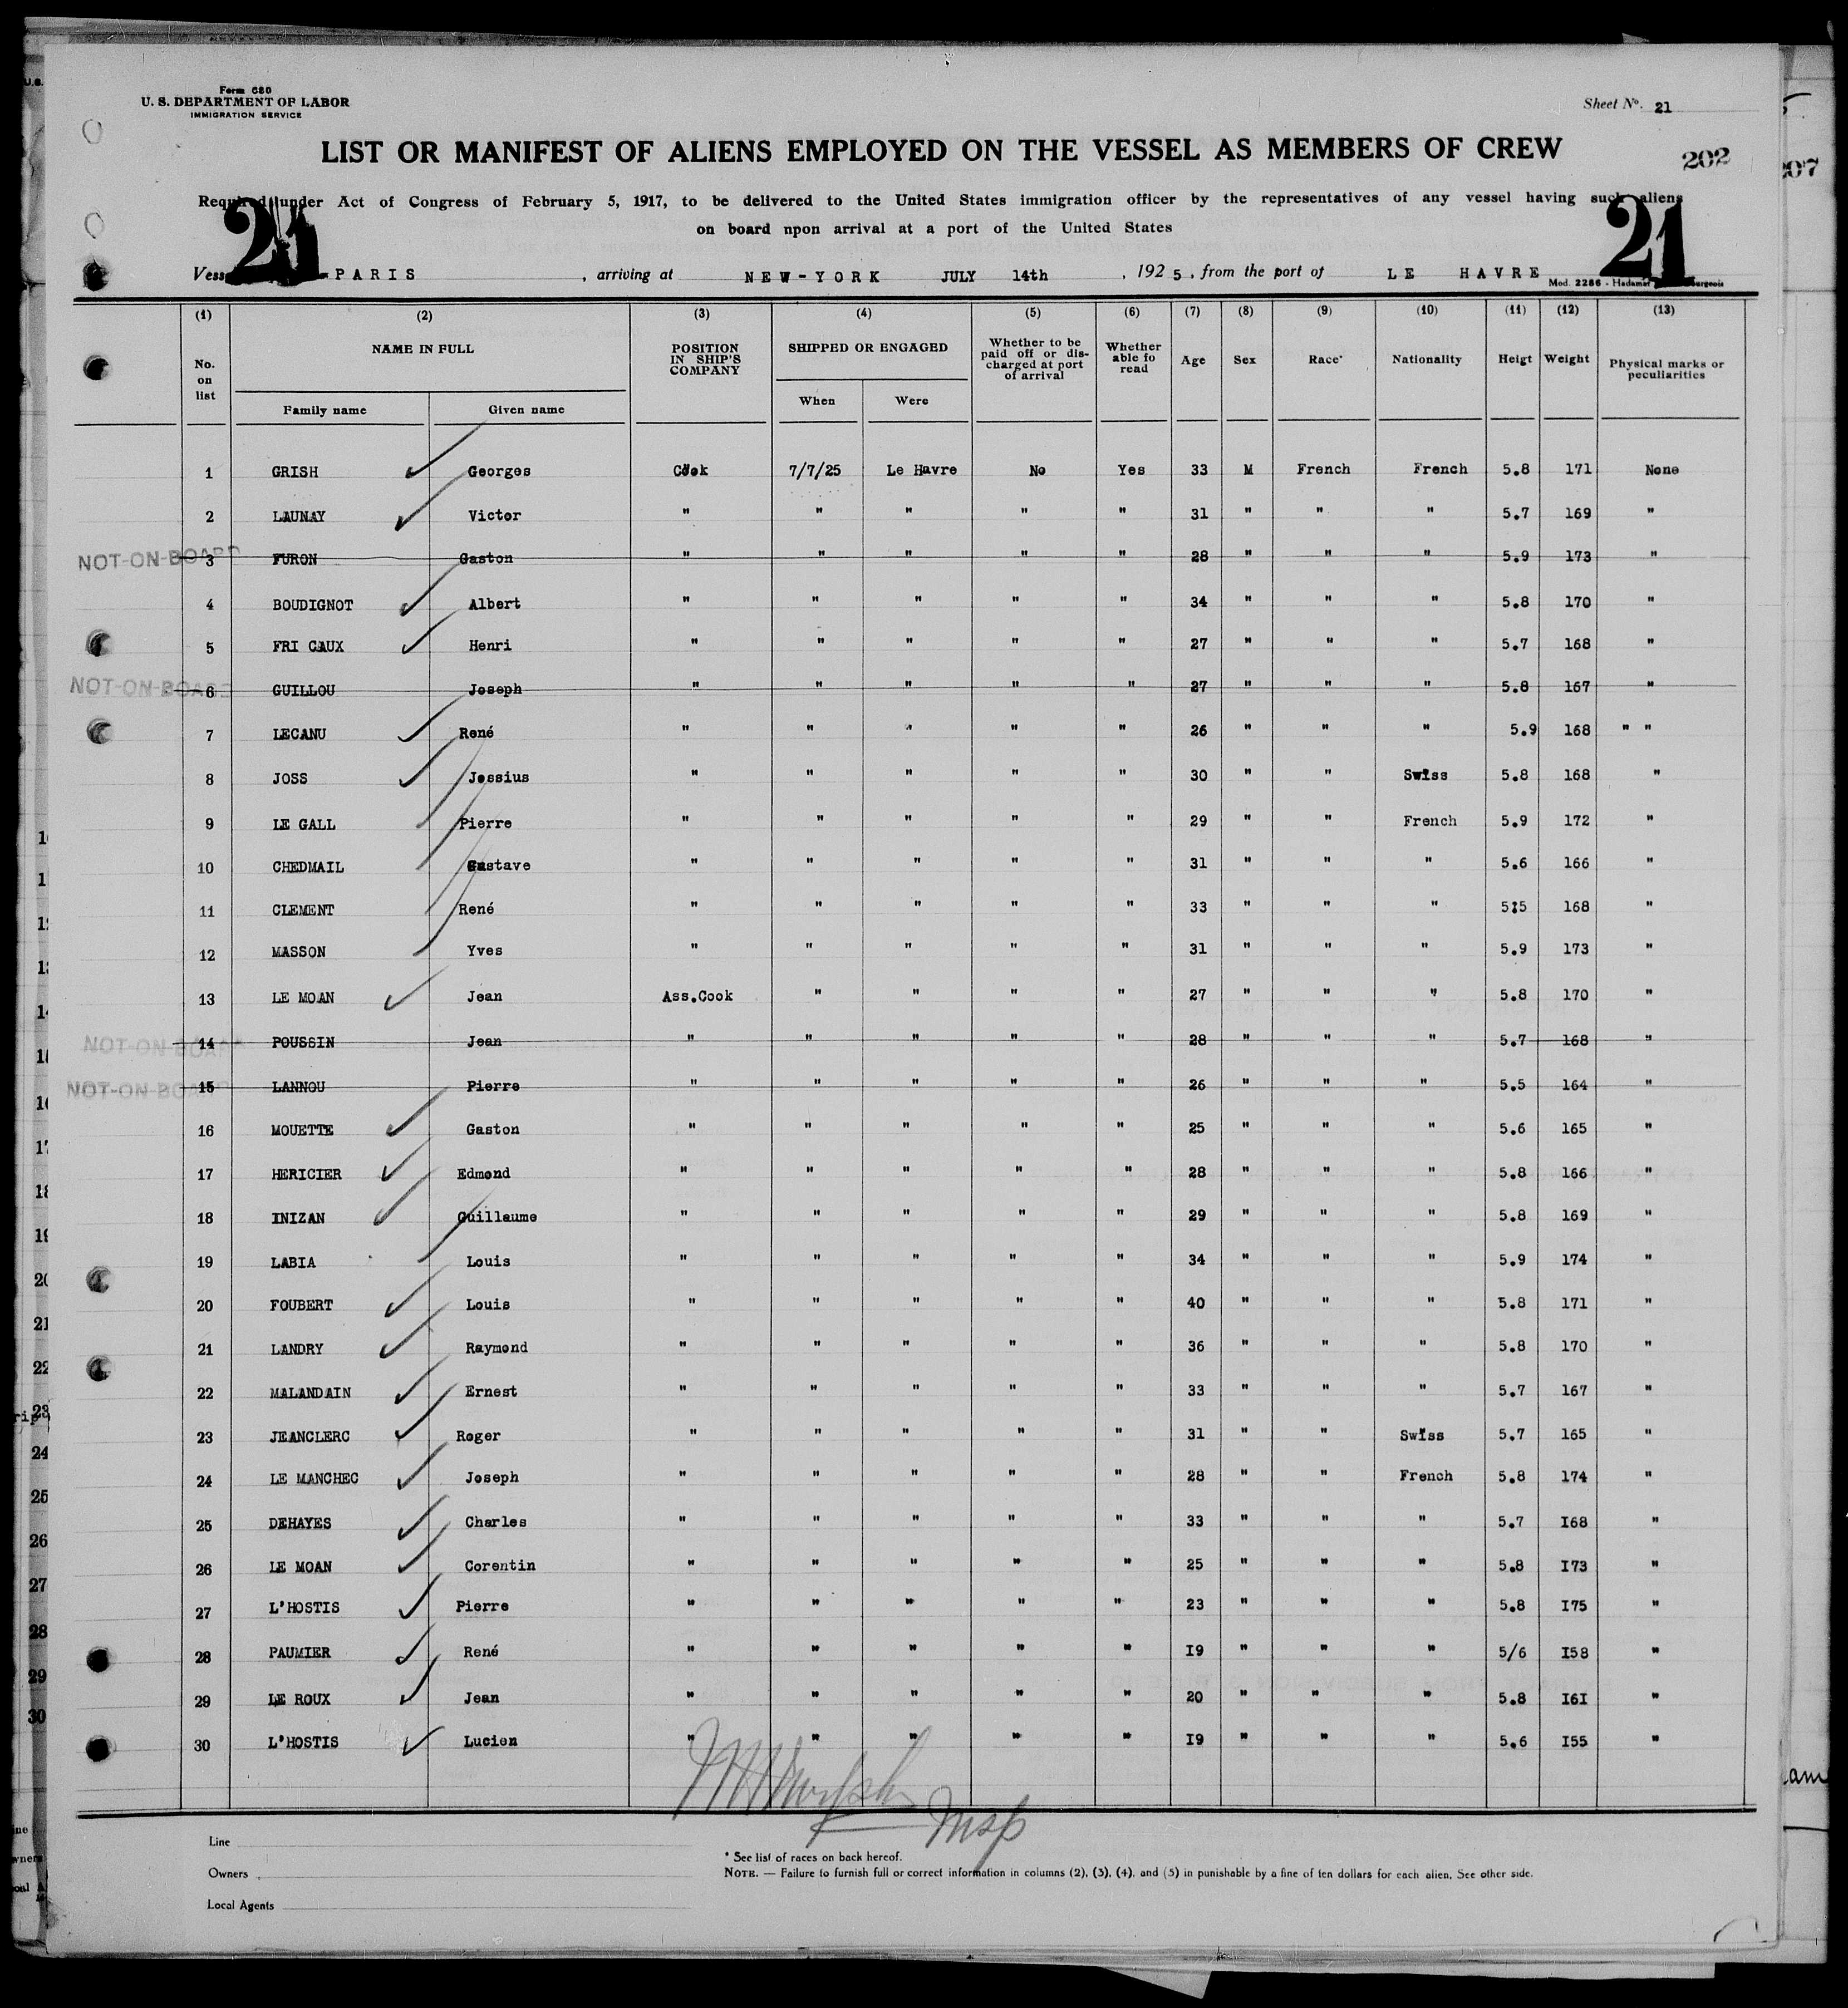 Form 680
U. S. DEPARTMENT OF LABOR
IMMIGRATION SERVICE
Sheet No. 21
LIST OR MANIFEST OF ALIENS EMPLOYED ON THE VESSEL AS MEMBERS OF CREW
202
Required under Act of Congress of February 5, 1917, to be delivered to the United States immigration officer by the representatives of any vessel having such aliens
on board npon arrival at a port of the United States
21 21
PARIS , arriving at NEW-YORK JULY 14th , 192 5 , from the port of LE HAVRE
Mod. 2286
(1) (2) (3) (4) (5) (6) (7) (8) (9) (10) (11) (12) (13)
No. on list NAME IN FULL POSITION IN SHIP'S COMPANY SHIPPED OR ENGAGED Whether to be paid off or discharged at port of arrival Whether able fo read Age Sex Race* Nationality Heigt Weight Physical marks or peculiarities
Family name Given name When Were
1 GRISH Georges Cook 7/7/25 Le Havre No Yes 33 M French French 5.8 171 None
2 LAUNAY Victor " " " " " 31 " " " 5.7 169 "
NOT-ON-BOARD 3 FURON Gaston " " " " " 28 " " " 5.9 173 "
4 BOUDIGNOT Albert " " " " " 34 " " " 5.8 170 "
5 FRI CAUX Henri " " " " " 27 " " " 5.7 168 "
NOT-ON-BOARD 6 GUILLOU Joseph " " " " " 27 " " " 5.8 167 "
7 LECANU René " " " " " 26 " " " 5.9 168 " "
8 JOSS Jessius " " " " " 30 " " Swiss 5.8 168 "
9 LE GALL Pierre " " " " " 29 " " French 5.9 172 "
10 CHEDMAIL Gustave " " " " " 31 " " " 5.6 166 "
11 CLEMENT René " " " " " 33 " " " 5:5 168 "
12 MASSON Yves " " " " " 31 " " " 5.9 173 "
13 LE MOAN Jean Ass.Cook " " " " 27 " " " 5.8 170 "
NOT-ON-BOARD 14 POUSSIN Jean " " " " " 28 " " " 5.7 168 "
NOT-ON-BOARD 15 LANNOU Pierre " " " " " 26 " " " 5.5 164 "
16 MOUETTE Gaston " " " " " 25 " " " 5.6 165 "
17 HERICIER Edmond " " " " " 28 " " " 5.8 166 "
18 INIZAN Guillaume " " " " " 29 " " " 5.8 169 "
19 LABIA Louis " " " " " 34 " " " 5.9 174 "
20 FOUBERT Louis " " " " " 40 " " " 5.8 171 "
21 LANDRY Raymond " " " " " 36 " " " 5.8 170 "
22 MALANDAIN Ernest " " " " " 33 " " " 5.7 167 "
23 JEANCLERC Roger " " " " " 31 " " Swiss 5.7 165 "
24 LE MANCHEC Joseph " " " " " 28 " " French 5.8 174 "
25 DEHAYES Charles " " " " " 33 " " " 5.7 I68 "
26 LE MOAN Corentin " " " " " 25 " " " 5.8 I73 "
27 L'HOSTIS Pierre " " " " " 23 " " " 5.8 I75 "
28 PAUMIER René " " " " " I9 " " " 5/6 I58 "
29 LE ROUX Jean " " " " " 20 " " " 5.8 I6I "
30 L'HOSTIS Lucien " " " " " I9 " " " 5.6 I55 "
Line
Owners
Local Agents
* See list of races on back hereof.
NOTE. — Failure to furnish full or correct information in columns (2), (3), (4), and (5) in punishable by a fine of ten dollars for each alien. See other side.